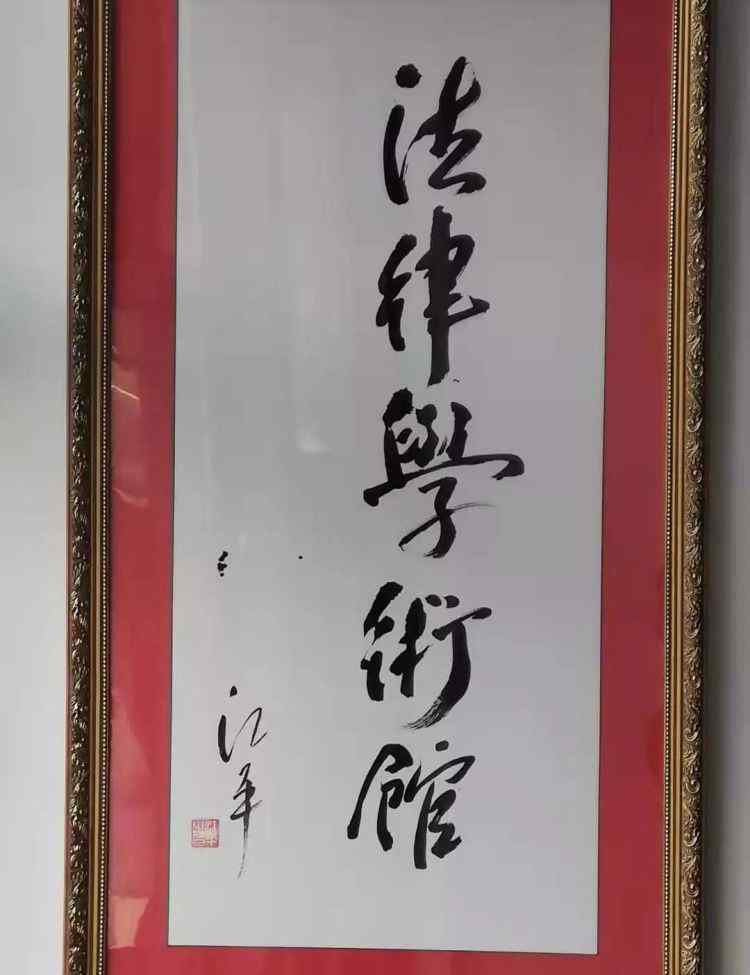 法律學術館
江平